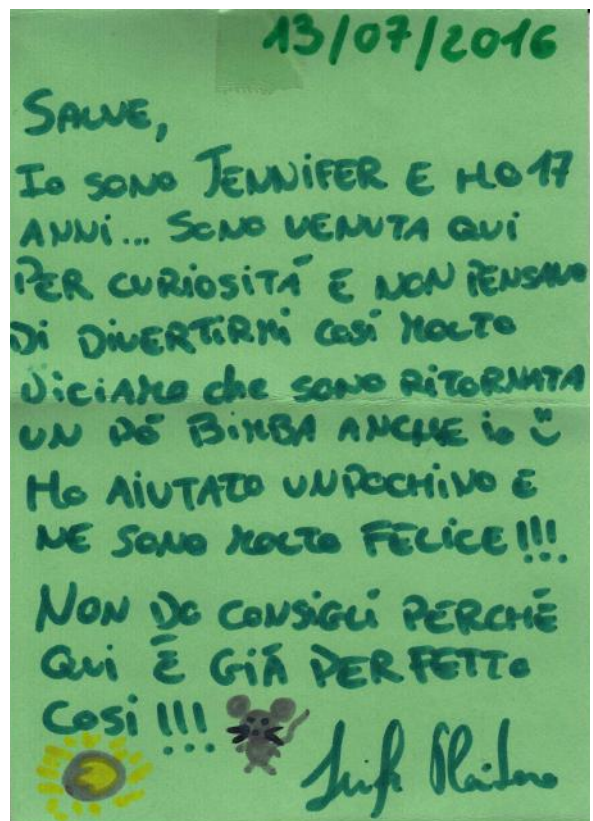 13/07/2016
SALVE,
IO SONO JENNIFER E HO 17
ANNI... SONO VENUTA QUI
PER CURIOSITÁ E NON PENSAVO
DI DIVERTIRMI COSÍ MOLTO
DICIAMO che SONO RITORNATA
UN PÓ BIMBA ANCHE io
HO AIUTATO UN POCHINO E
NE SONO MOLTO FELICE!!!
NON DO CONSIGLI PERCHÉ
QUI É GIÁ PERFETTO
COSÌ !!!